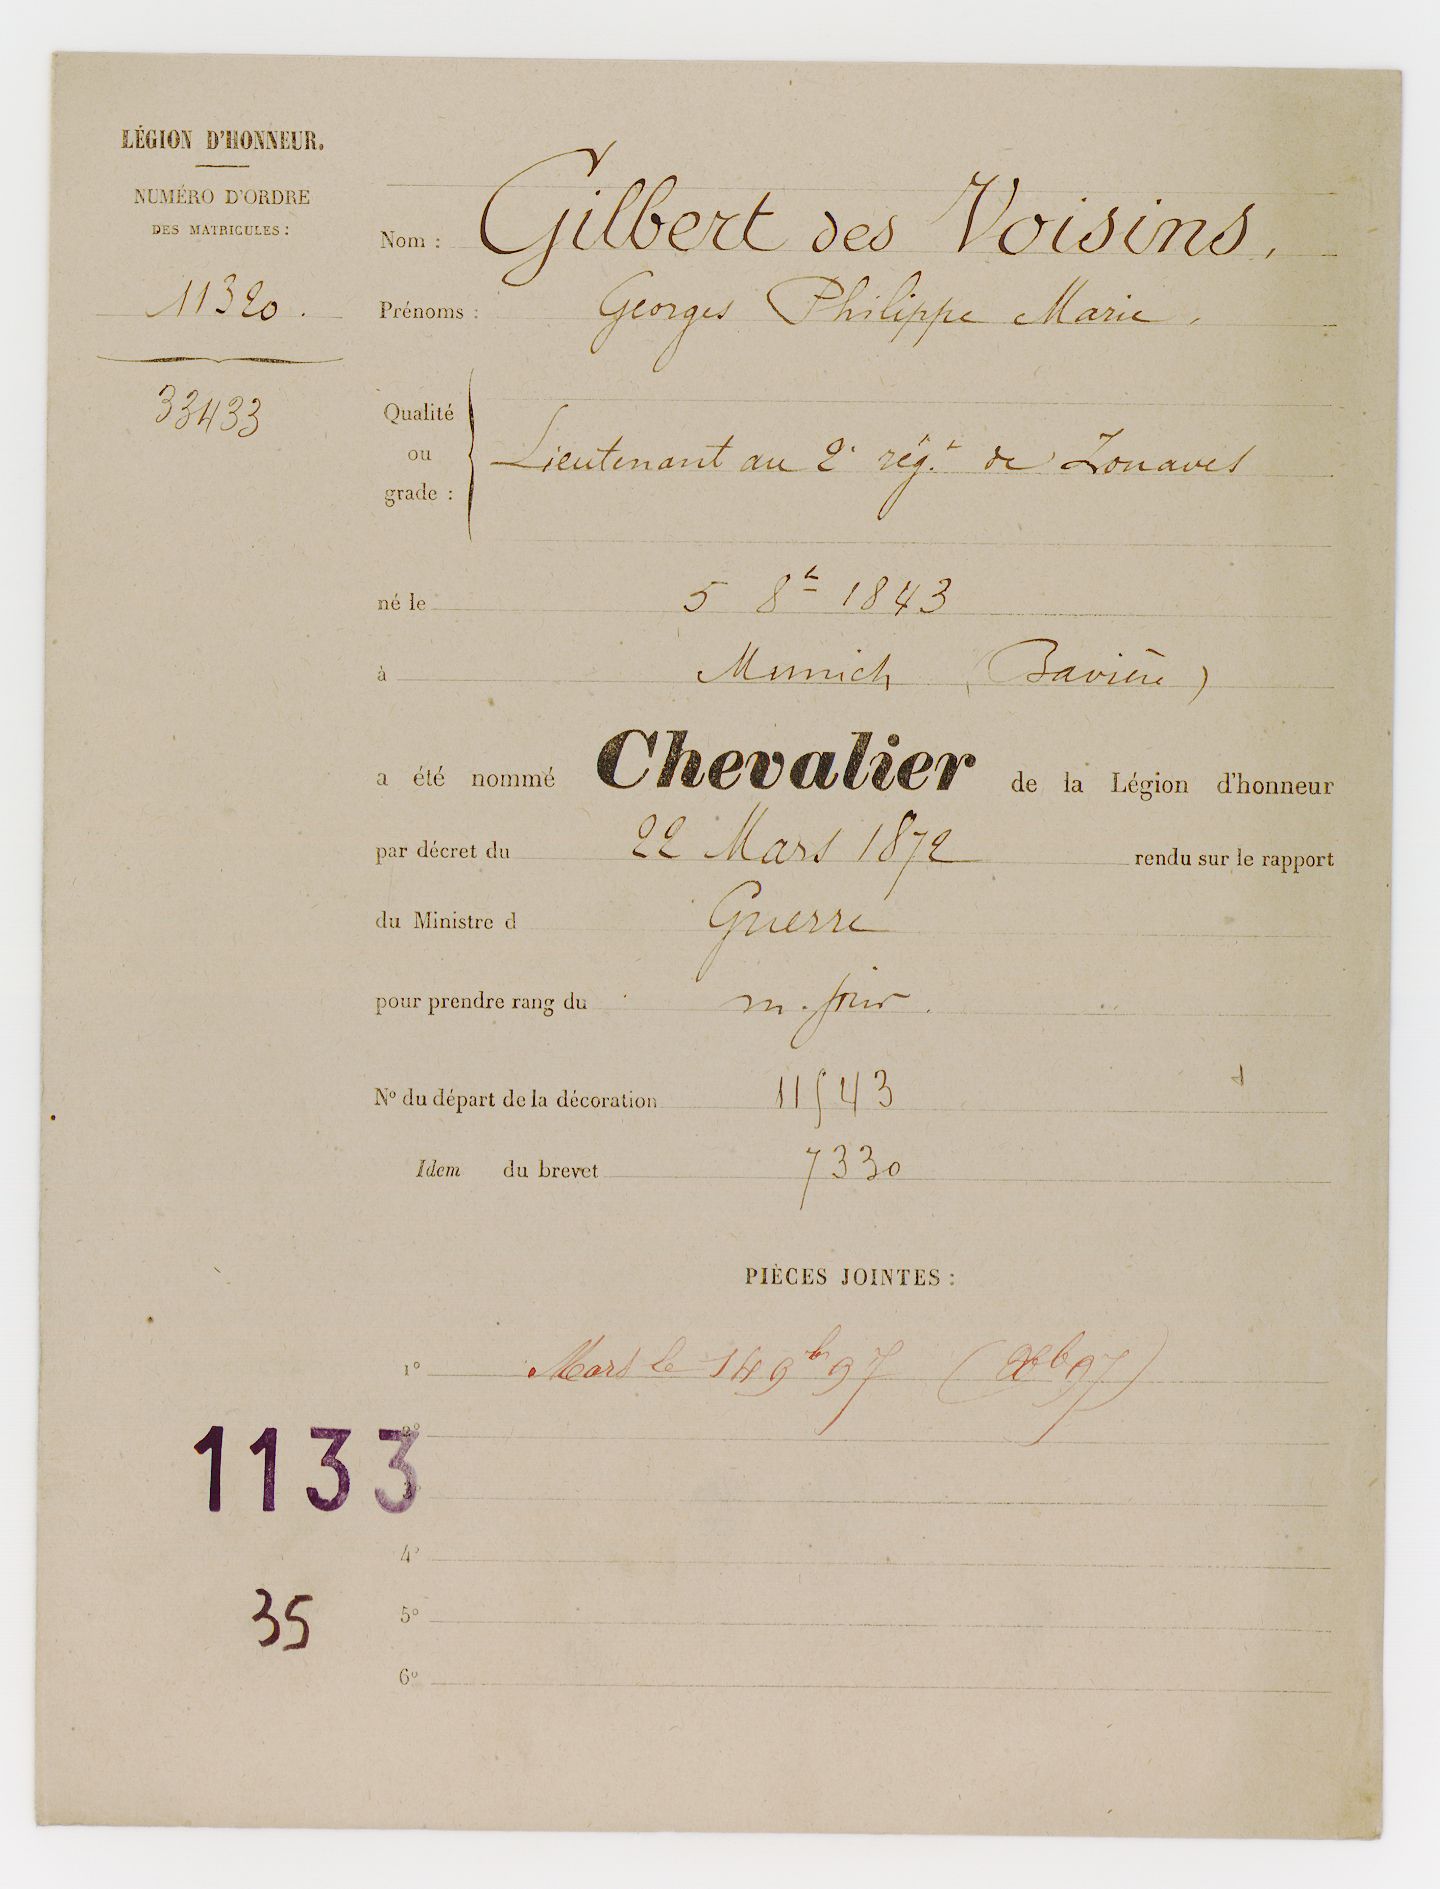 LÉGION D'HONNEUR.
NUMÉRO D'ORDRE
DES MATRICULES :
11320.
33433
Nom : Gilbert des Voisins,
Prénoms : Georges Philippe Marie,
Qualité
ou
grade :
Lieutenant au 2e régt de Zouaves
né le 5 8bre 1843
à Munich (Bavière)
a été nommé Chevalier de la Légion d'honneur
par décret du 22 Mars 1872 rendu sur le rapport
du Ministre d Guerre
pour prendre rang du m. jour.
No du départ de la décoration 11543
Idem du brevet 7330
PIÈCES JOINTES :
1o le 14 9b 97
2o
4o
5o
6o
1133
35